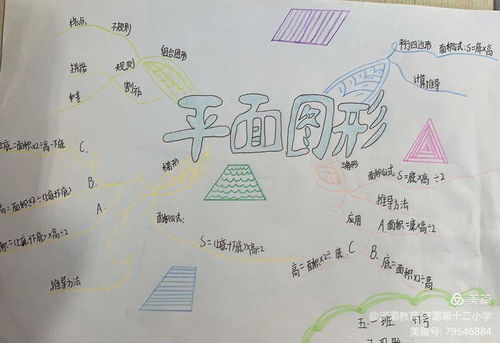 平面图形
组合图形
不规则
格点
规则
拼接
割补
平行四边形
面积公式:S=底×高
计算推导
三角形
面积公式 S=底×高÷2
推导方法
应用
A 面积=底×高÷2
B. 底=面积×2÷高
C
高=面积×2÷底
梯形
面积公式:
S=(上底+下底)×高÷2
A.
面积=(上底+下底)×高÷2
B.
高=面积×2÷(上底+下底)
C.
上底=面积×2÷高-下底
推导方法
五.一班
美篇
第十二小学
美篇号: 79546884